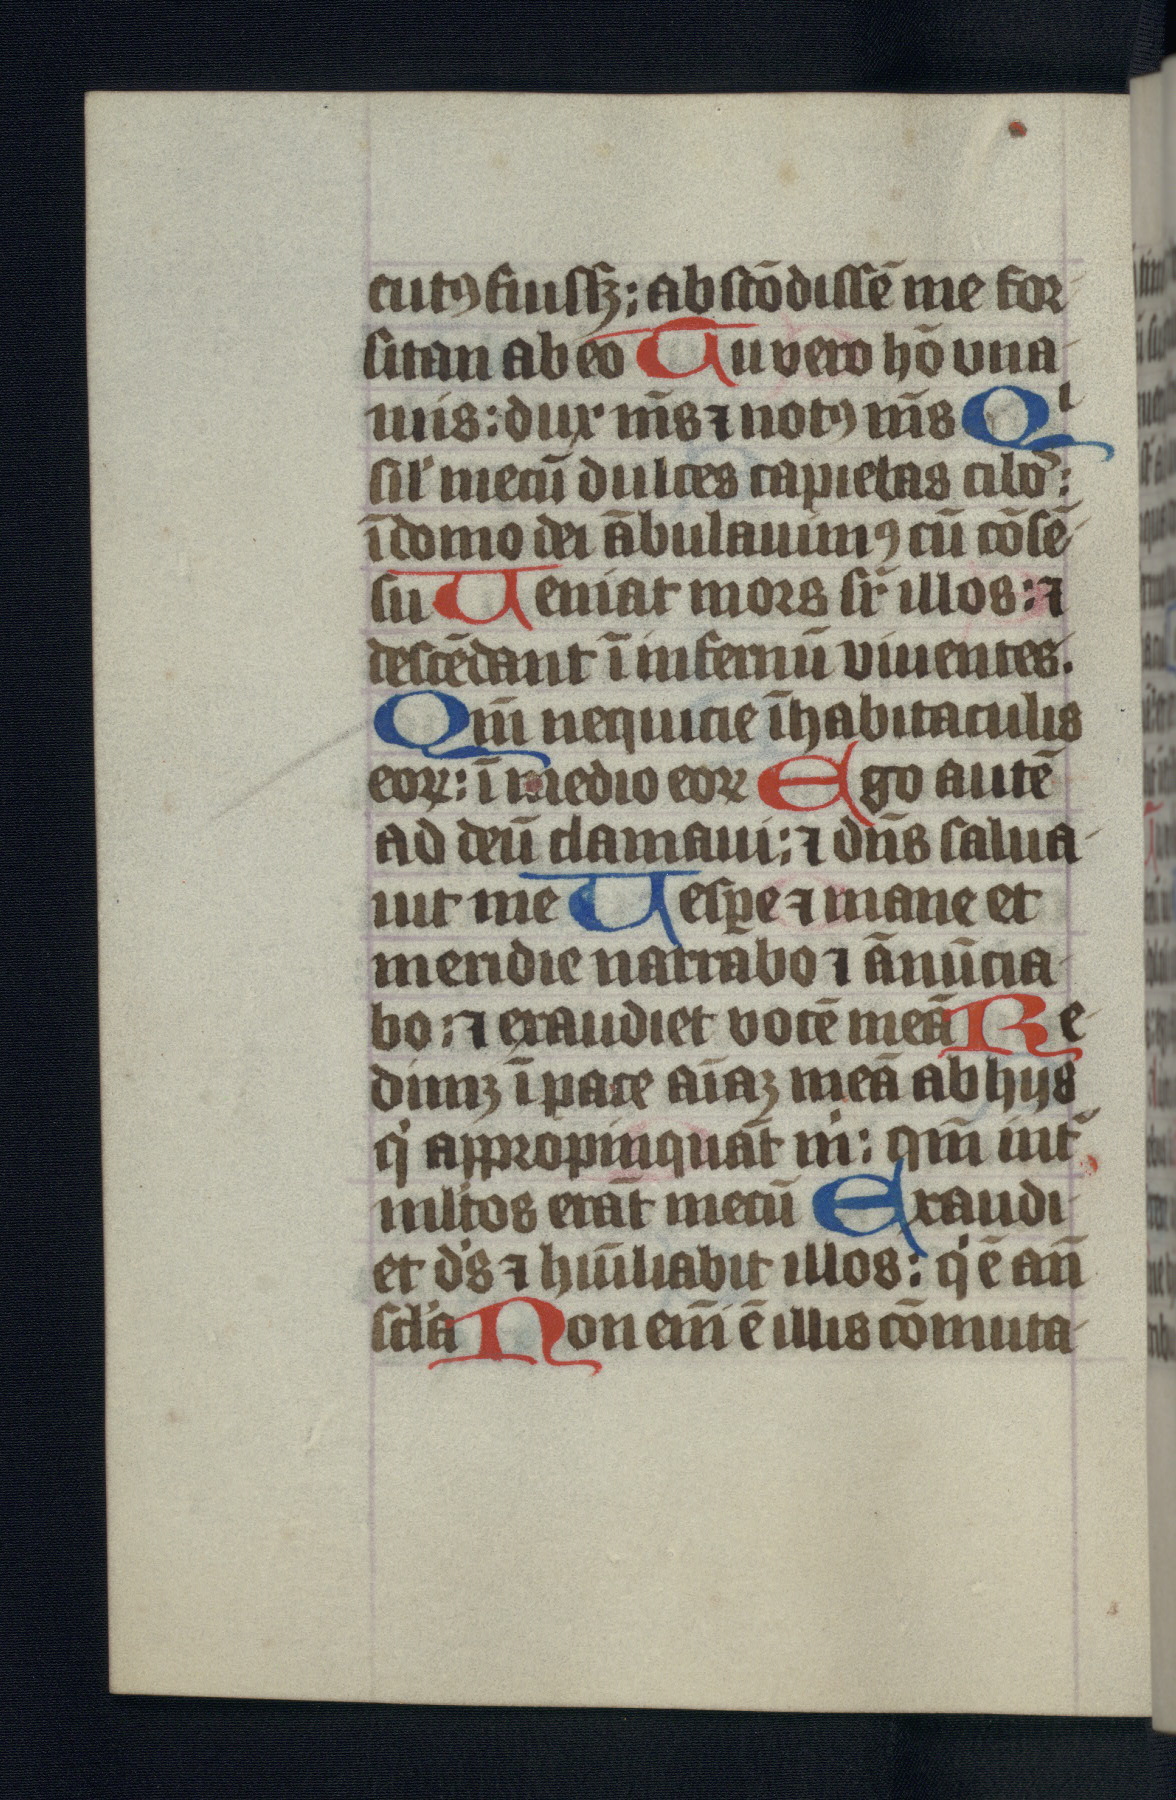 cutꝯ fuissꝫ: abscōdissē me for
sitan ab eo Tu vero hō vna
mis: dux mēs ⁊ notꝯ mēs Qͥ
sil' mecū dulces capiebas cibos:
ī domo dei ābulauimꝯ cū cōsē
su Ueniat mors sr̄ illos: ⁊
descēdant ī infernū viuentes.
Qm̄ nequicie ī habitaculis
eoꝝ: ī medio eoꝝ Ego autē
ad deū clamaui: ⁊ dn̄s salua
uit me Uesꝑe ⁊ mane et
meridie narrabo ⁊ ānūcia
bo: ⁊ exaudiet vocē meā Re
dimꝫ ī pace aīaꝫ meā ab hijs
qͥ appropinquāt mͥ: qm̄ int̄
ml'tos erāt mecū Exaudi
et dˢs ⁊ hūiliabit illos: qͥ ē an̄
scl'a Non em̄ ē illis cōmuta